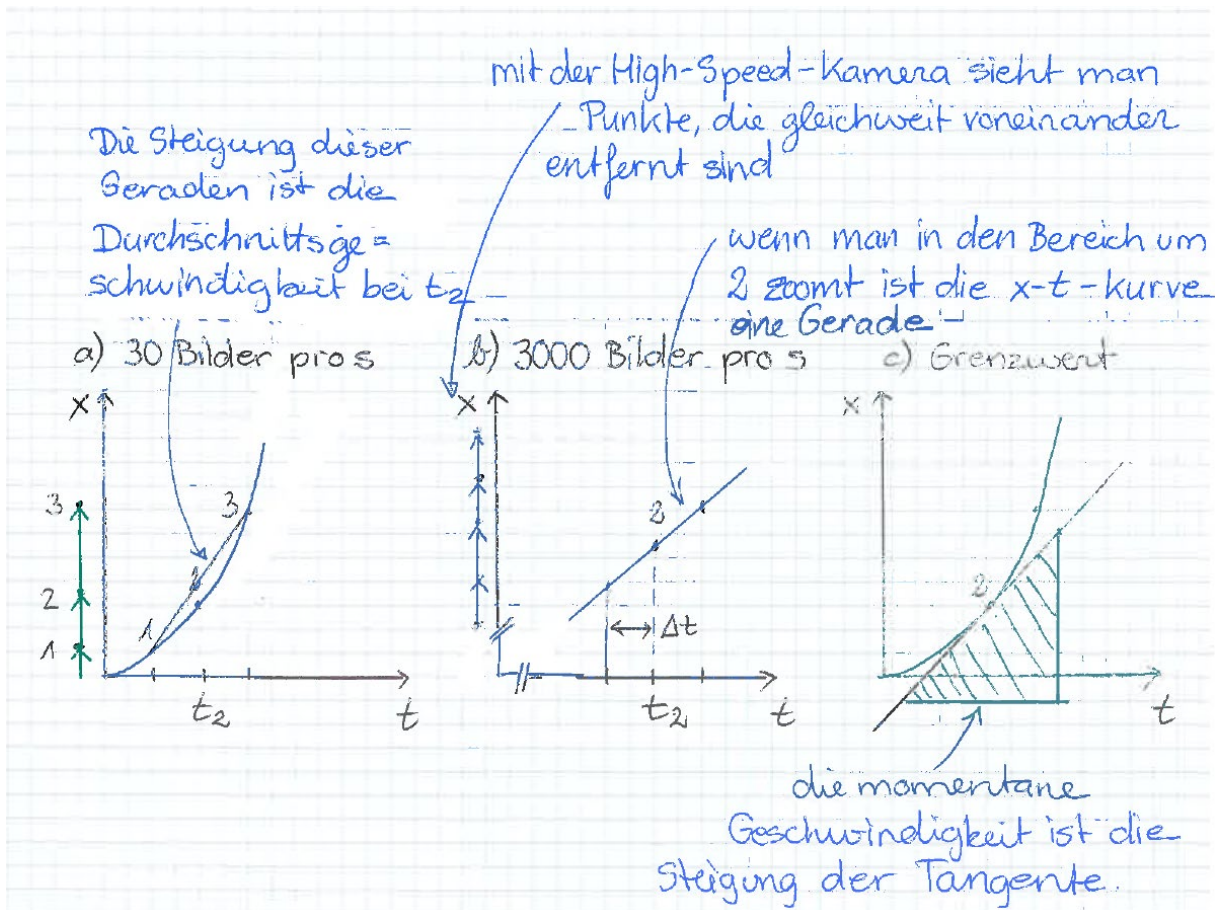 mit der High-Speed-Kamera sieht man
Punkte, die gleichweit voneinander
entfernt sind
Die Steigung dieser
Geraden ist die
Durchschnittsge=
schwindigkeit bei t₂
wenn man in den Bereich um
2 zoomt ist die x-t-kurve
eine Gerade
a) 30 Bilder pro s
x
3
2
1
3
2
1
t₂
t
b) 3000 Bilder pro s
x
2
Δt
t₂
t
c) Grenzwert
x
2
t
die momentane
Geschwindigkeit ist die
Steigung der Tangente.